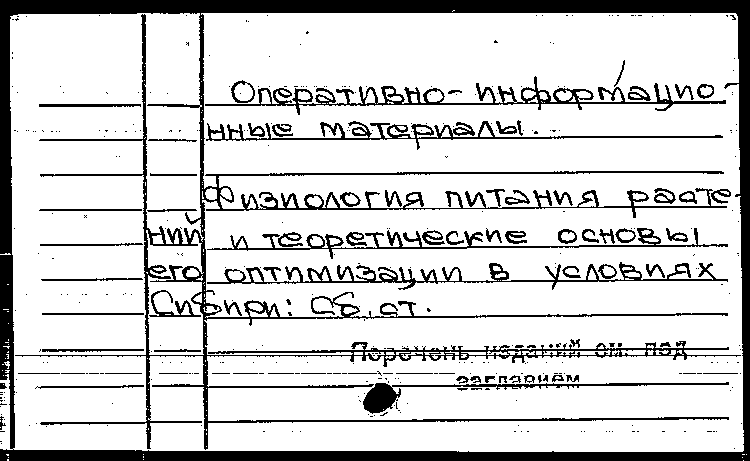 Оперативно-информацио-
нные материалы.
Физиология питания расте-
ний и теоретические основы
его оптимизации в условиях
Сибири: Сб. ст.
Перечень изданий см. под
заглавием